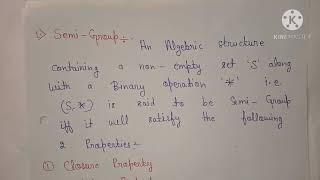 Semi-Group:-
An Algebraic structure
containing a non-empty set 'S' along
with a Binary operation '*' i.e.
(S,*) is said to be Semi-Group
iff it will satisfy the following
2 Properties:-
① Closure Property